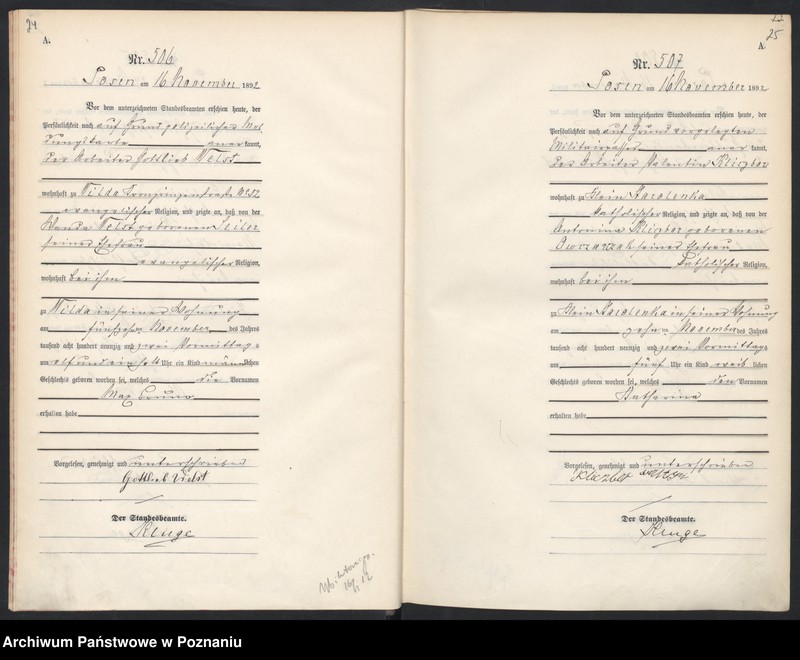 24
A.
Nr. 506
Posen am 16 November 1892
Vor dem unterzeichneten Standesbeamten erschien heute, der
Persönlichkeit nach auf Grund polizeilicher Mel
dungskarte anerkannt,
der Arbeiter Gottlieb
wohnhaft zu Wilda
evangelischer Religion, und zeigte an, daß von der
Wanda geborenen
seiner Ehefrau
evangelischer Religion,
wohnhaft bei ihm
zu Wilda in seiner Wohnung
am fünfzehn November des Jahres
tausend acht hundert neunzig und zwei Vormittags
um elf und ein halb Uhr ein Kind männlichen
Geschlechts geboren worden sei, welches die Vornamen
Max Bruno
erhalten habe
Vorgelesen, genehmigt und unterschrieben
Gottlieb
Der Standesbeamte.
25
A.
Nr. 507
Posen am 16 November 1892
Vor dem unterzeichneten Standesbeamten erschien heute, der
Persönlichkeit nach auf Grund vorgelegten
Militairpasses anerkannt,
der Arbeiter Valentin Kliczbor
wohnhaft zu Klein Starolenka
katholischer Religion, und zeigte an, daß von der
Antonina Kliczbor geborenen
Owczarzak seiner Ehefrau
katholischer Religion,
wohnhaft bei ihm
zu Klein Starolenka in seiner Wohnung
am zehn November des Jahres
tausend acht hundert neunzig und zwei Vormittags
um fünf Uhr ein Kind weiblichen
Geschlechts geboren worden sei, welches den Vornamen
Katharina
erhalten habe
Vorgelesen, genehmigt und unterschrieben
Der Standesbeamte.
Archiwum Państwowe w Poznaniu